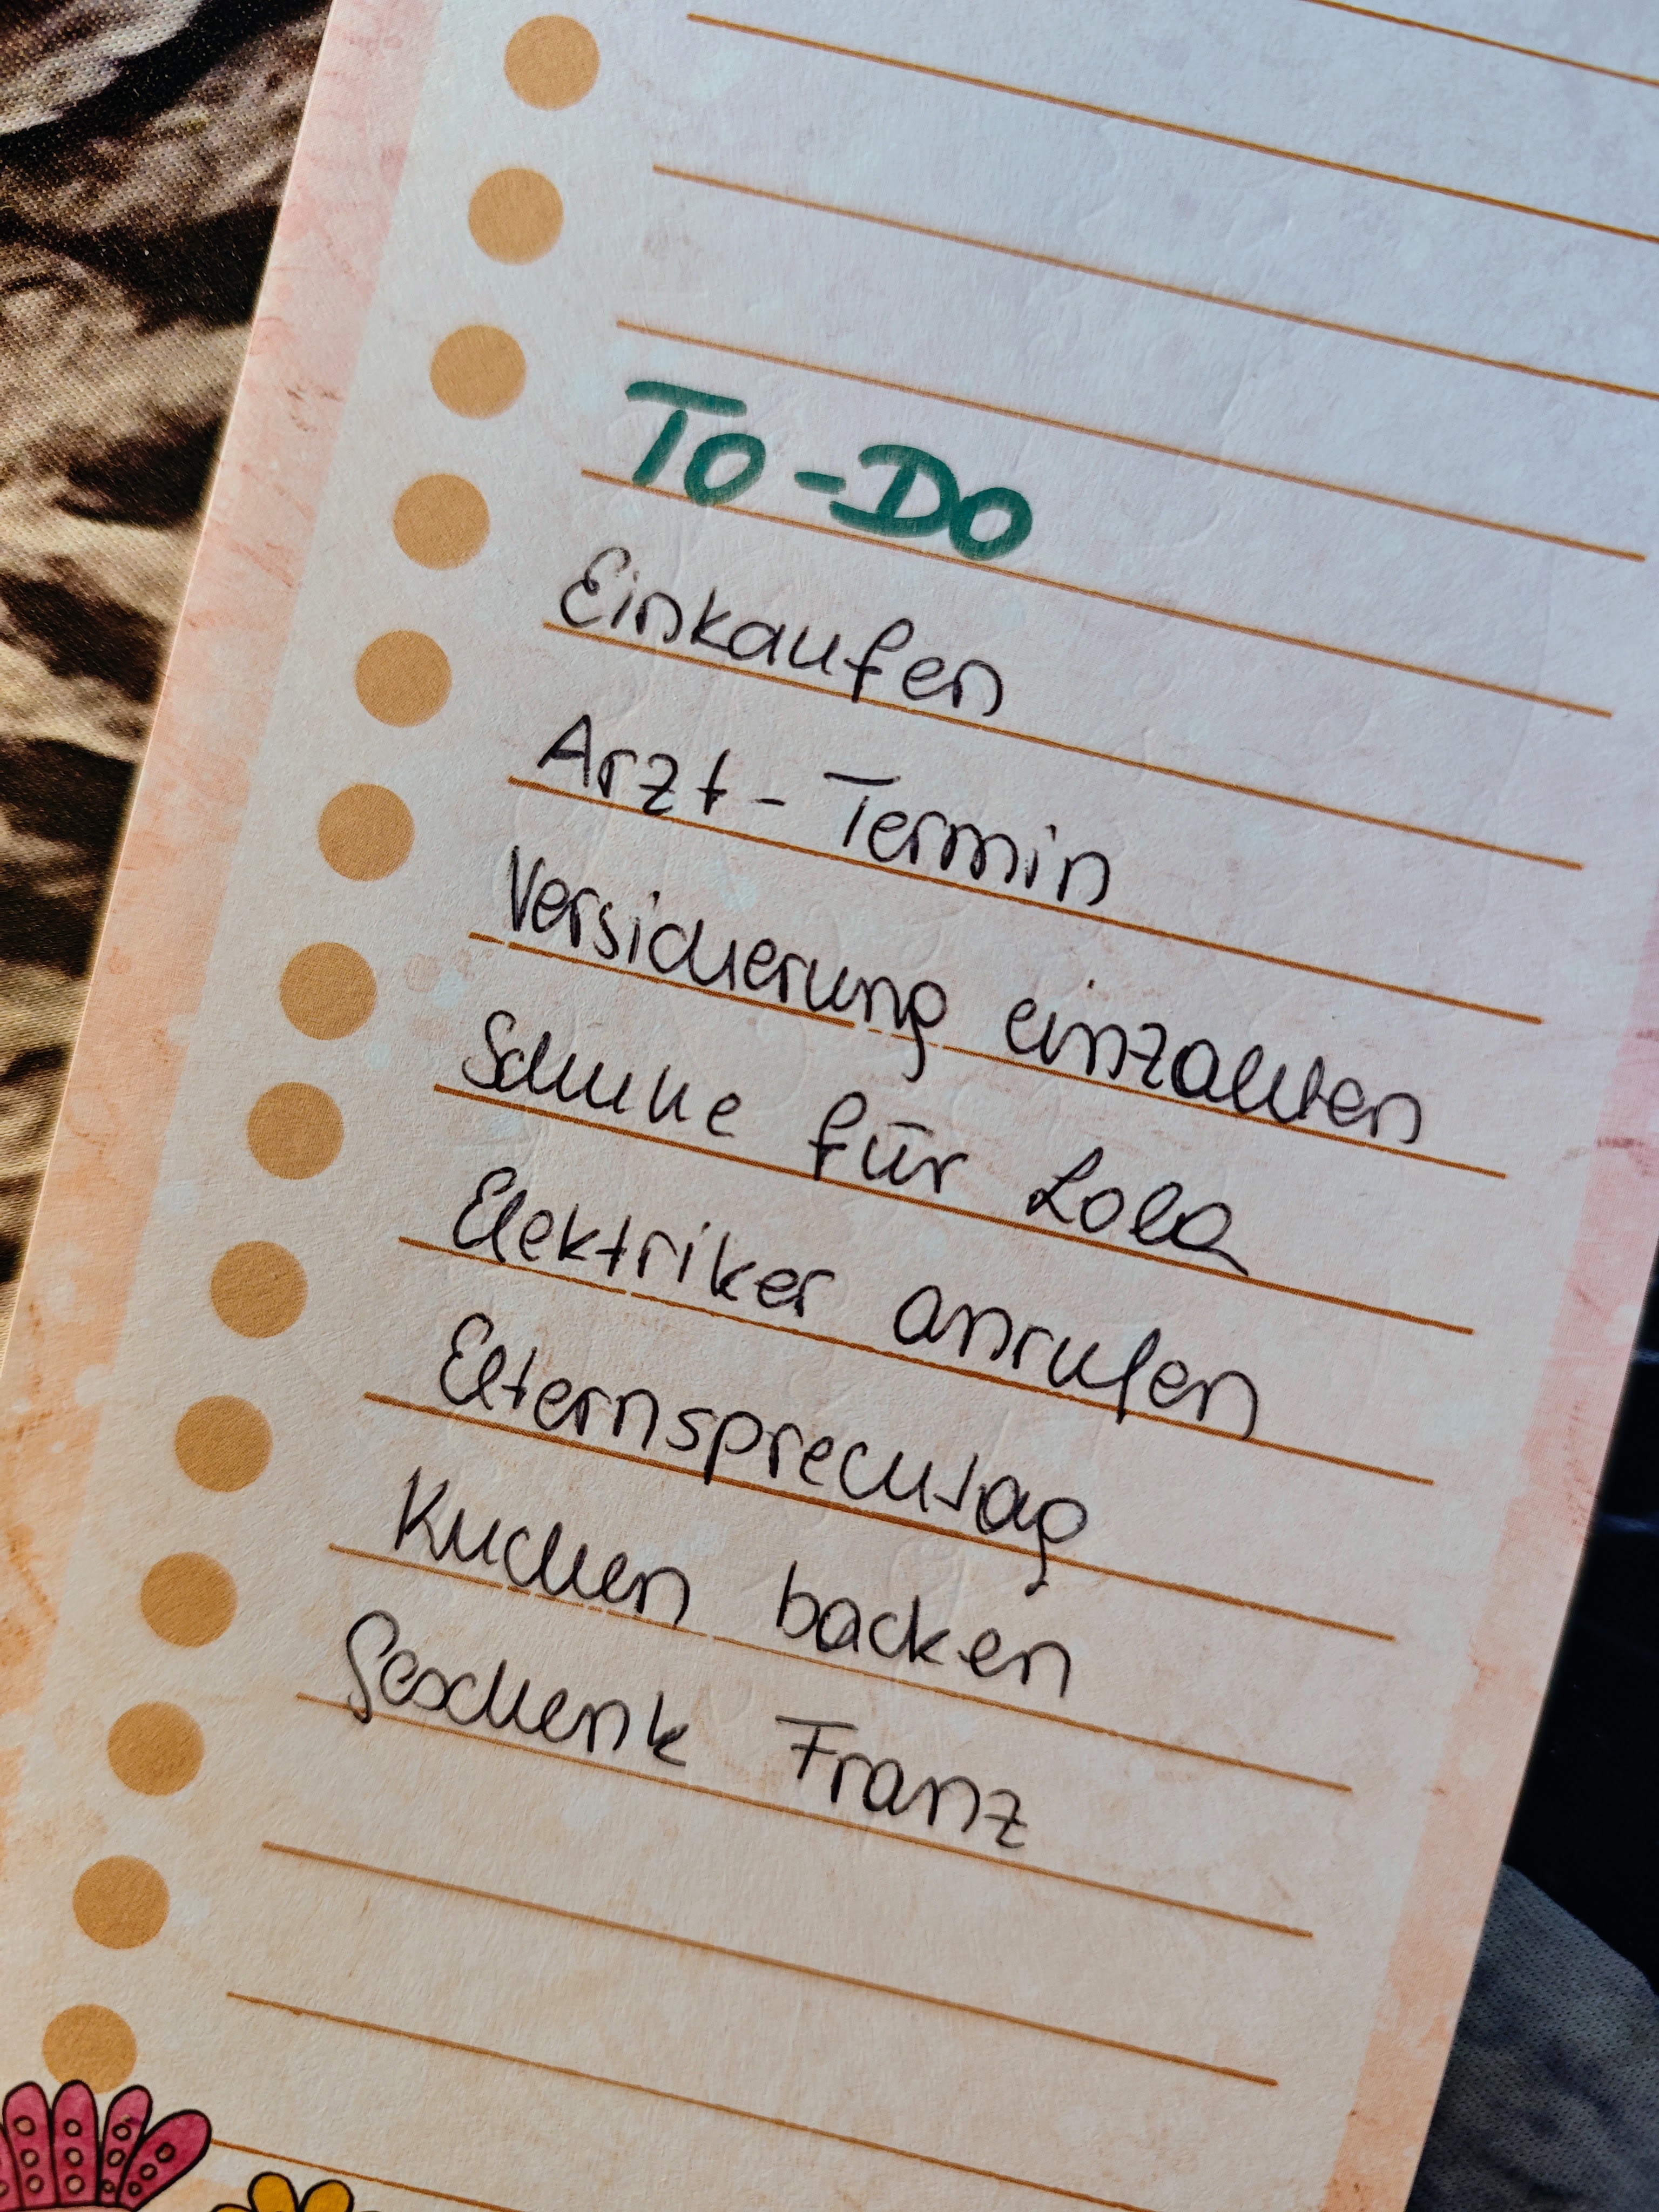 To-Do
Einkaufen
Arzt-Termin
Versicherung einzahlen
Schuhe für Lola
Elektriker anrufen
Elternsprechtag
Kuchen backen
Geschenk Franz